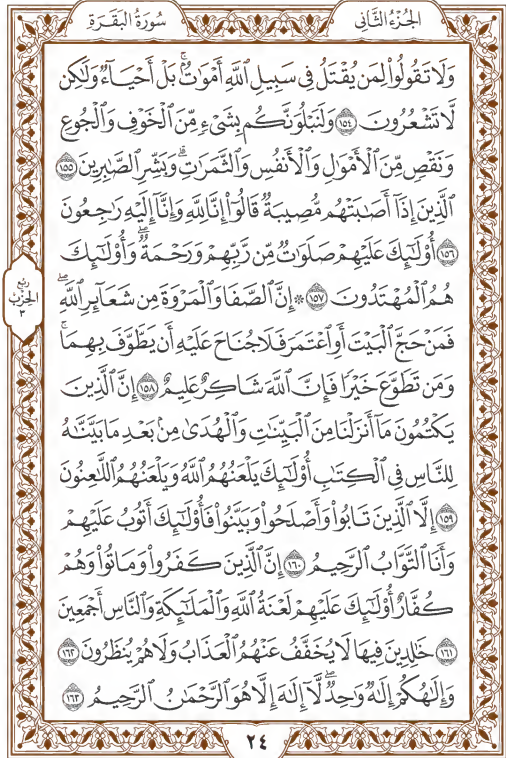 الجُزْءُ الثَّانِي
سُورَةُ البَقَرَةِ
وَلَا تَقُولُوا۟ لِمَن يُقْتَلُ فِي سَبِيلِ ٱللَّهِ أَمْوَٰتٌۢۚ بَلْ أَحْيَآءٌ وَلَٰكِن
لَّا تَشْعُرُونَ ١٥٤ وَلَنَبْلُوَنَّكُم بِشَىْءٍ مِّنَ ٱلْخَوْفِ وَٱلْجُوعِ
وَنَقْصٍ مِّنَ ٱلْأَمْوَٰلِ وَٱلْأَنفُسِ وَٱلثَّمَرَٰتِۗ وَبَشِّرِ ٱلصَّٰبِرِينَ ١٥٥
ٱلَّذِينَ إِذَآ أَصَٰبَتْهُم مُّصِيبَةٌ قَالُوٓا۟ إِنَّا لِلَّهِ وَإِنَّآ إِلَيْهِ رَٰجِعُونَ
١٥٦ أُو۟لَٰٓئِكَ عَلَيْهِمْ صَلَوَٰتٌ مِّن رَّبِّهِمْ وَرَحْمَةٌۖ وَأُو۟لَٰٓئِكَ
هُمُ ٱلْمُهْتَدُونَ ١٥٧ ۞ إِنَّ ٱلصَّفَا وَٱلْمَرْوَةَ مِن شَعَآئِرِ ٱللَّهِۖ
فَمَنْ حَجَّ ٱلْبَيْتَ أَوِ ٱعْتَمَرَ فَلَا جُنَاحَ عَلَيْهِ أَن يَطَّوَّفَ بِهِمَاۚ
وَمَن تَطَوَّعَ خَيْرًا فَإِنَّ ٱللَّهَ شَاكِرٌ عَلِيمٌ ١٥٨ إِنَّ ٱلَّذِينَ
يَكْتُمُونَ مَآ أَنزَلْنَا مِنَ ٱلْبَيِّنَٰتِ وَٱلْهُدَىٰ مِنۢ بَعْدِ مَا بَيَّنَّٰهُ
لِلنَّاسِ فِي ٱلْكِتَٰبِ أُو۟لَٰٓئِكَ يَلْعَنُهُمُ ٱللَّهُ وَيَلْعَنُهُمُ ٱللَّٰعِنُونَ
١٥٩ إِلَّا ٱلَّذِينَ تَابُوا۟ وَأَصْلَحُوا۟ وَبَيَّنُوا۟ فَأُو۟لَٰٓئِكَ أَتُوبُ عَلَيْهِمْ
وَأَنَا ٱلتَّوَّابُ ٱلرَّحِيمُ ١٦٠ إِنَّ ٱلَّذِينَ كَفَرُوا۟ وَمَاتُوا۟ وَهُمْ
كُفَّارٌ أُو۟لَٰٓئِكَ عَلَيْهِمْ لَعْنَةُ ٱللَّهِ وَٱلْمَلَٰٓئِكَةِ وَٱلنَّاسِ أَجْمَعِينَ
١٦١ خَٰلِدِينَ فِيهَا لَا يُخَفَّفُ عَنْهُمُ ٱلْعَذَابُ وَلَا هُمْ يُنظَرُونَ ١٦٢
وَإِلَٰهُكُمْ إِلَٰهٌ وَٰحِدٌۖ لَّآ إِلَٰهَ إِلَّا هُوَ ٱلرَّحْمَٰنُ ٱلرَّحِيمُ ١٦٣
ربع
الحزب
٣
٢٤